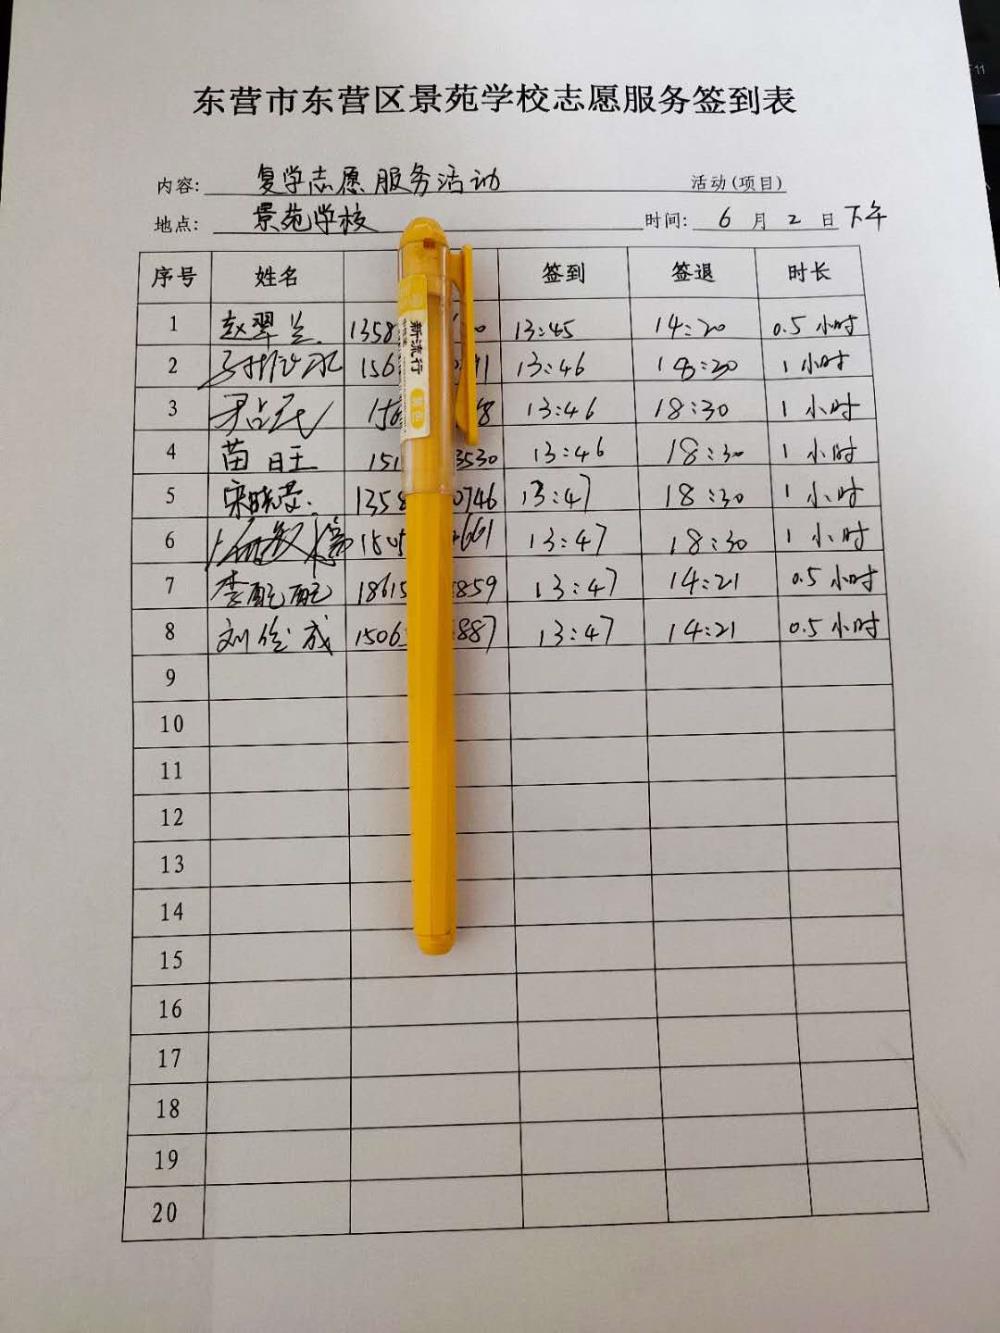 东营市东营区景苑学校志愿服务签到表
内容: 复学志愿服务活动 活动(项目)
地点: 景苑学校 时间: 6 月 2 日 下午
序号 姓名 签到 签退 时长
1 赵翠兰 1358 13:45 14:20 0.5小时
2 156 13:46 18:20 1小时
3 13:46 18:30 1小时
4 苗旺 151 3530 13:46 18:30 1小时
5 宋晓 1358 0746 13:47 18:30 1小时
6 661 13:47 18:30 1小时
7 李 18615 859 13:47 14:21 0.5小时
8 刘 成 1506 887 13:47 14:21 0.5小时
9
10
11
12
13
14
15
16
17
18
19
20
新流行
F11